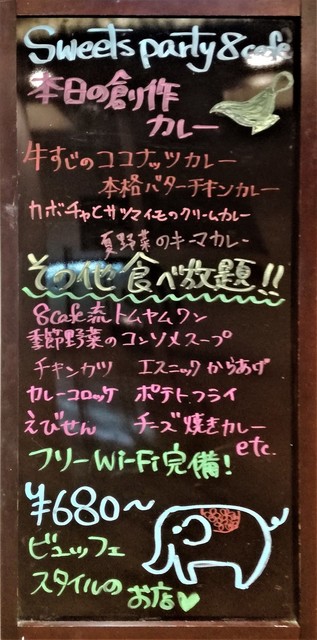 Sweets party 8cafe
本日の創作
カレー
牛すじのココナッツカレー
本格バターチキンカレー
カボチャとサツマイモのクリームカレー
夏野菜のキーマカレー
その他食べ放題!!
8cafe流トムヤムワン
季節野菜のコンソメスープ
チキンカツ エスニックからあげ
カレーコロッケ ポテトフライ
えびせん チーズ焼きカレー
etc.
フリーWi-Fi完備!
¥680〜
ビュッフェ
スタイルの
お店♥